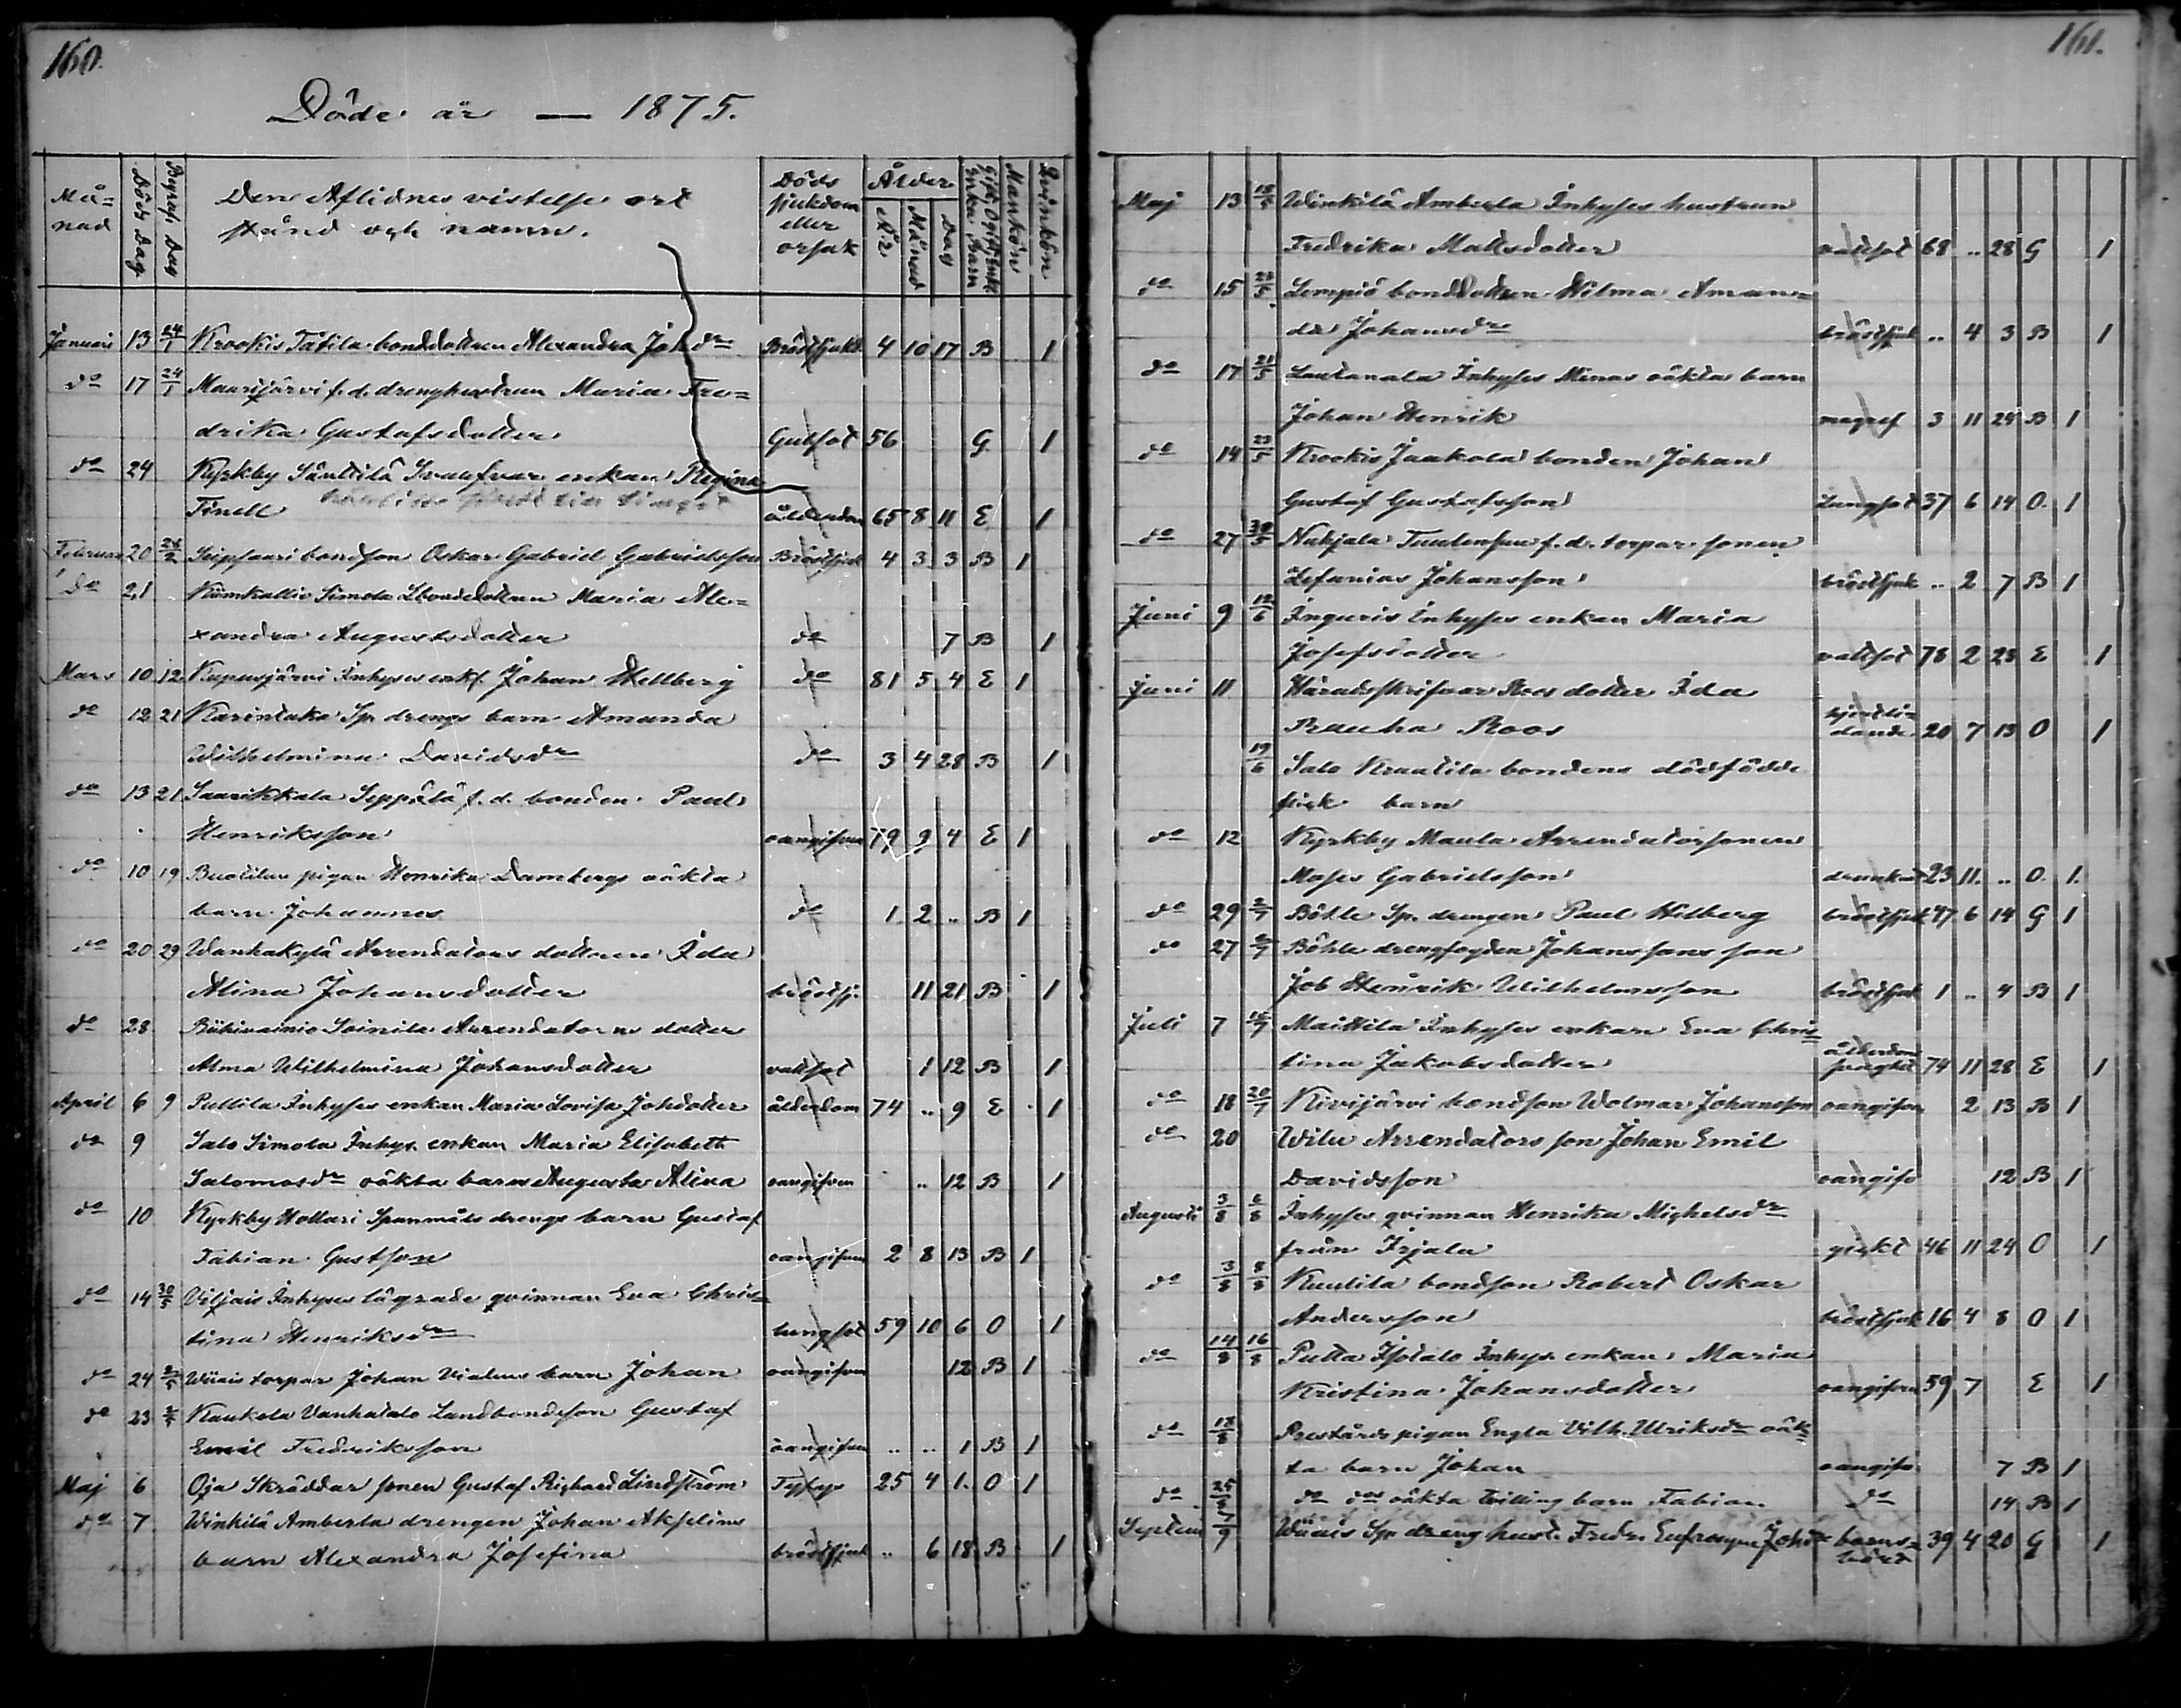 160.
Döde år — 1875.
Må=
nad
Döds Dag
Begraf. Dag
Den Aflidnes vistelse ort
stånd och namn.
Döds
sjukdom
eller
orsak
Ålder
År
Månad
Dag
Mankön
Qvinkön
Januari 13 24/1 Krookis Täfila bonddottren Alexandra Joh dr Bröstsjukd. 4 10 17 B 1
do 17 24/1 Maurijärvi f. d. drenghustrun Maria Fre=
drika Gustafsdotter Gulsot 56 G. 1
do 24 Kyrkby Sänttilä enkan Regina
Tinell ålderdom 65 8 11 E 1
Februari 20 28/2 Seipsaari bondson Oskar Gabriel Gabrielsson Bröstsjuk 4 3 3 B 1
Do 21 Kiimkallio Simola Lbonddottren Maria Ale=
xandra Augustsdotter do 7 B 1
Mars 10 12 Kupusjärvi Inhyses enkl. Johan Hellberg do 81 5 4 E 1
do 12 21 Karintaka Sp. drengs barn Amanda
Wilhelmina Davidsdr do 3 4 28 B 1
do 13 21 Saarikkala Seppälä f. d. bonden Paul
Henriksson oangifven 79 9 4 E 1
do 10 19 pigan Henrika Dambergs oäkta
barn Johannes do 1 2 .. B 1
do 20 29 Wanhakylä Arrendators dottren Ida
Alina Johansdotter bröstsj. 11 21 B 1
do 28 Riihivainio Soinila Arrendatorns dotter
Alma Wilhelmina Johansdotter vattsot 1 12 B 1
April 6 9 Puttila Inhyses enkan Maria Lovisa Johdotter ålderdom 74 .. 9 E 1
do 9 Salo Simola Inhys. enkan Maria Elisabeth
Salomosdr oäkta barn Augusta Alina oangifven .. 12 B 1
do 10 Kyrkby Hollari Spanmåls drengs barn Gustaf
Fabian Gustsson oangifven 2 8 13 B 1
do 14 30/5 Viljais Inhyses lågrade qvinnan Eva Chris=
tina Henriksdr lungsot 59 10 6 O 1
do 24 2/5 Wiiais torpar Johan Vialens barn Johan oangifven 12 B 1
do 23 2/5 Kaukola Vanhatalo Landbondeson Gustaf
Emil Fredriksson oangifven .. .. 1 B 1
Maj 6 Oja Skräddar sonen Gustaf Richard Lindström Tyfus 25 4 1. O 1
do 7 Winkilä Amberla drengen Johan Akselins
barn Alexandra Josefina bröstsjuk .. 6 18 B 1
161.
Maj 13 18/5 Winkilä Amberla Inhyses hustrun
Fredrika Mattsdotter vattsot 68 .. 28 G 1
do 15 23/5 Lempiö bonddottren Wilma Aman=
da Johansdr bröstsjuk .. 4 3 B 1
do 17 21/5 Lautanala Inhyses Minas oäkta barn
Johan Henrik 3 11 24 B 1
do 14 23/5 Krookis Jaakola bonden Johan
Gustaf Gustafsson Lungsot 37 6 14 O. 1
do 27 30/5 Nuhjala f. d. torpar sonen
Zefanias Johansson bröstsjuk .. 2 7 B 1
Juni 9 12/6 Inguris Inhyses enkan Maria
Josefsdotter vattsot 78 2 23 E 1
Juni 11 Häradsskrifvar Roos dotter Ida
Rauha Roos hjertli=
dande 20 7 13 O 1
19/6 Salo Kraatila bondens dödfödde
flick barn
do 12 Kyrkby Maula Arrendatorsonen
Moses Gabrielsson drunknat 23 11. .. O. 1.
do 29 2/7 Böhle Sp. drengen Paul Hilberg bröstsjuk 47 6 14 G 1
do 27 Böhle drengfogden Johanssons son
Job Henrik Wilhelmsson bröstsjuk 1 .. 4 B 1
Juli 7 Maittila Inhyses enkan Eva Chris=
tina Jakobsdotter ålderdoms
svaghet 74 11 28 E 1
do 18 20/7 Kivijärvi bondson Wolmar Johansson oangifven 2 13 B 1
do 20 Wilu Arrendators son Johan Emil
Davidsson oangifv 12 B 1
Augusti 3/8 6/8 Inhyses qvinnan Henrika Michelsdr
från Irjala gickt 46 11 24 O 1
do 3/8 8/8 Kuutila bondson Robert Oskar
Andersson bröstsjuk 16 4 8 O 1
do 14/8 16/8 Putta Isotalo Inhys. enkan Maria
Kristina Johansdotter oangifven 59 7 E 1
do 18/8 Prestgårds pigan Engla Vilh. Ulriksdr oäk=
ta barn Johan oangifv. 7 B 1
do 25/8 do dos oäkta tvilling barn Fabian do 14 B 1
Septem 5/9 Wiiais Sp. dreng hust. Fredr. Eufrosyne Johdr barns=
börd 39 4 20 G 1